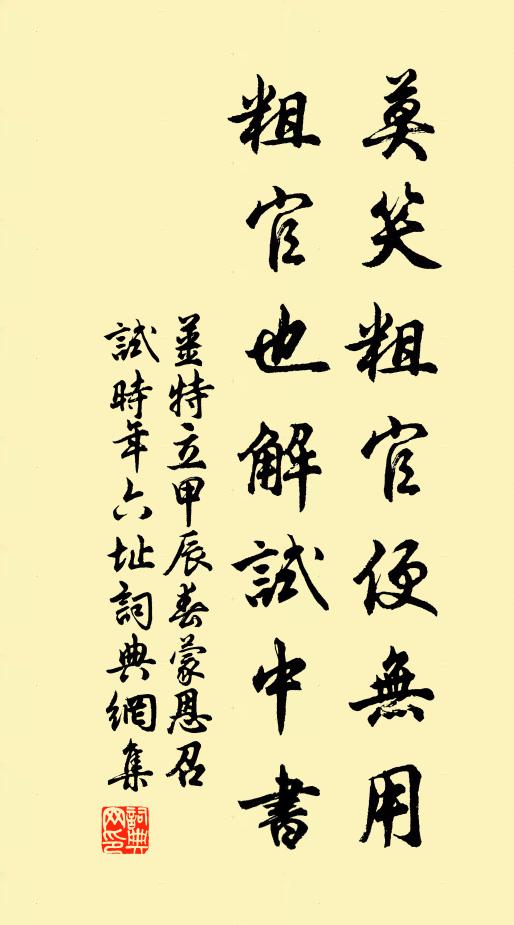 莫笑粗官便無用
粗官也解試中書
姜特立甲辰春蒙恩召
試時年六址詞典網集
詞典
网印